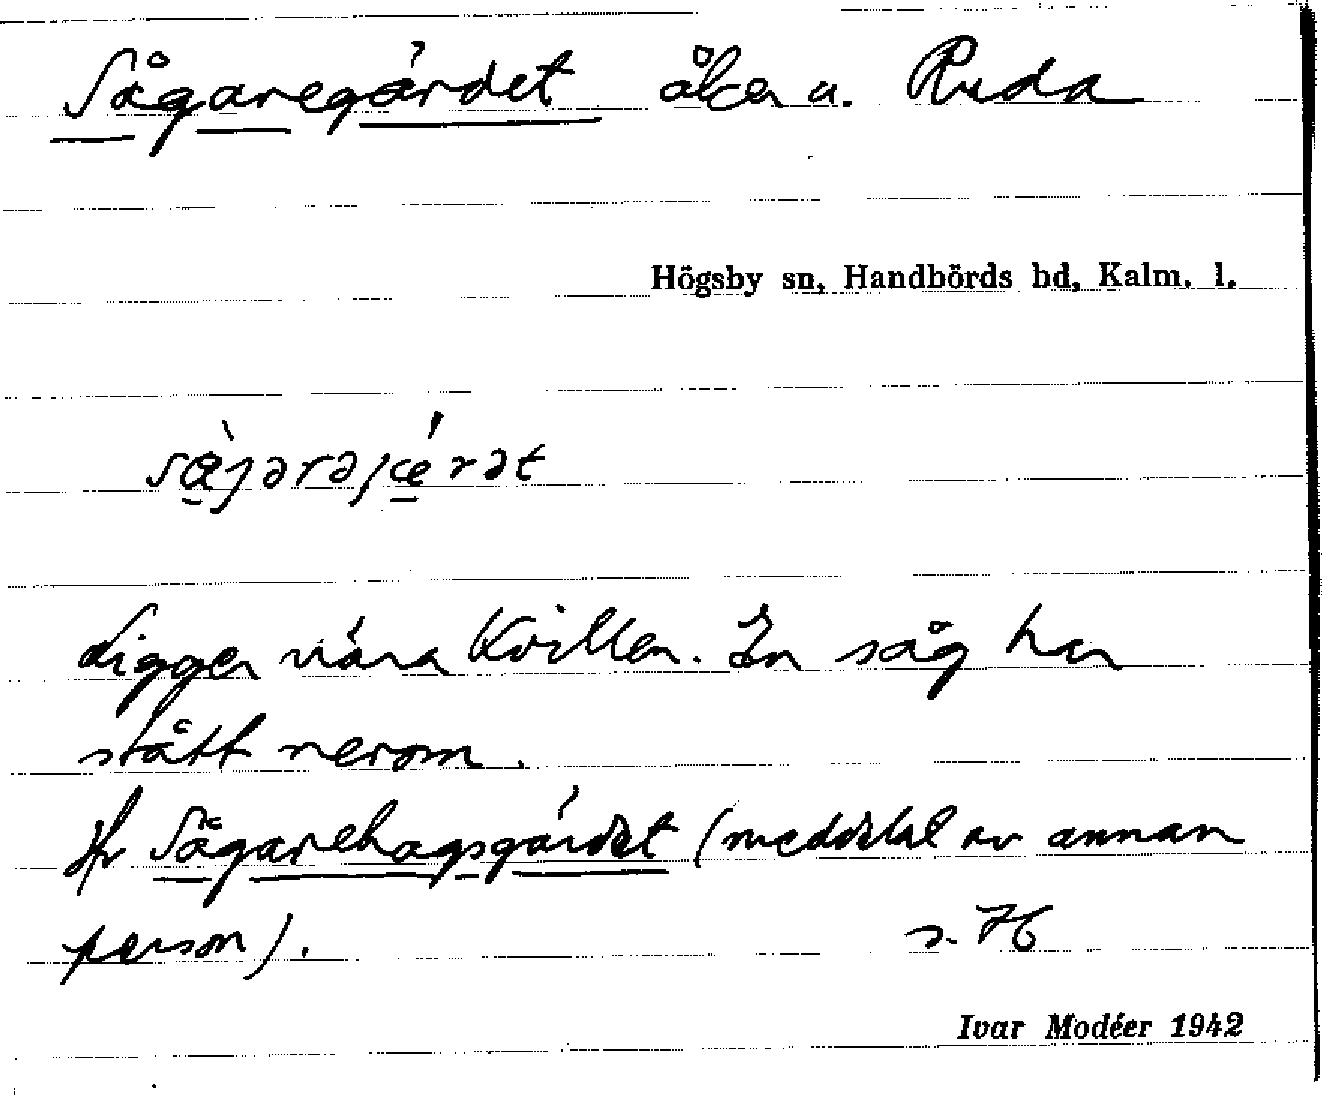 Sågaregärdet åker u. Ruda
Högsby sn, Handbörds hd, Kalm. l.
sæ̀jərəjæ̍rət
Ligger nära Kvillen. En såg har
stått nerom.
Jfr Sågarehagsgärdet (meddelat av annan
person). s. H
Ivar Modéer 1942